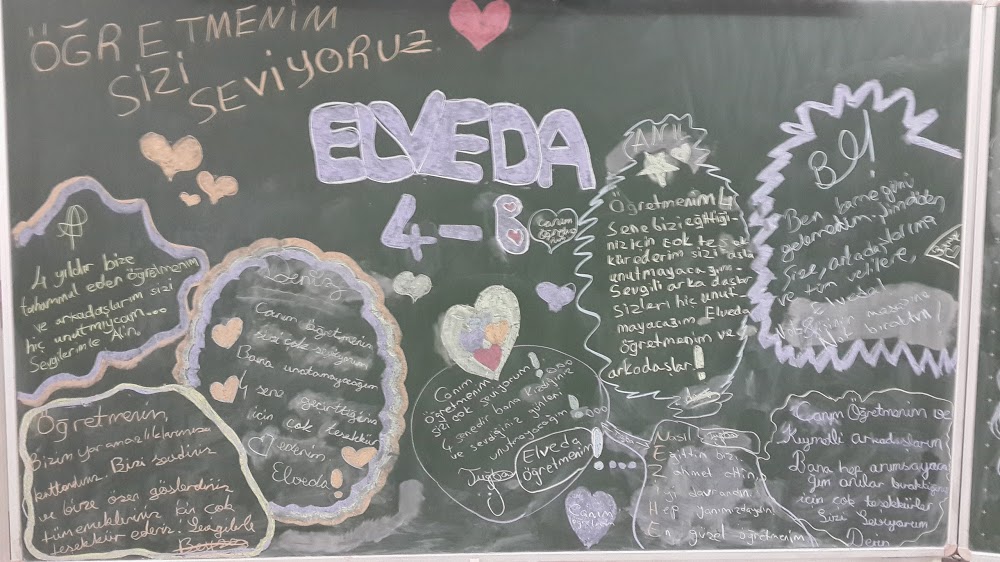 ÖĞRETMENİM
SİZİ
SEVİYORUZ
ELVEDA
4-B
Canım
4 yıldır bize
tahammül eden öğretmenim
ve arkadaşlarım sizi
hiç unutmıycam...
Sevgilerimle Alin.
Öğretmenim,
Bizim yaramazlıklarımıza
katlandınız. Bizi sevdiniz
ve bize özen gösterdiniz
tüm emekleriniz için çok
teşekkür ederim! Sevgilerle
Canım Öğretmenim
sizi çok seviyorum
Bana unutamayacağım
4 sene geçirttiğiniz
için çok teşekkür
ederim
Elveda!
Canım
öğretmenim
sizi çok seviyorum!
4 senedir bana kızdığınız
ve sevdiğiniz günleri
unutmayacağım!
Tuğba
Elveda
öğretmenim!
ANIL
Öğretmenim 4
sene bizi eğittiği-
niz için çok teşek
kür ederim sizi asla
unutmayacağım.
Sevgili arkadaşlar
sizleri hiç unut
mayacağım. Elveda
öğretmenim ve
arkadaşlar!
Ben karne günü
gelemedim. Şimdiden
size, arkadaşlarıma
ve tüm velilere,
elveda!
masasına
Not bıraktım!
Nasıl
Eğittin bizi
Zahmet ettin
İyi davrandın
Hep yanımızdaydın
En güzel öğretmenim
Canım
öğretmenim
Canım Öğretmenim ve
Kıymetli arkadaşlarım
Bana hep anımsayaca-
ğım anılar bıraktığınız
için çok teşekkürler
Sizi Seviyorum
Derin